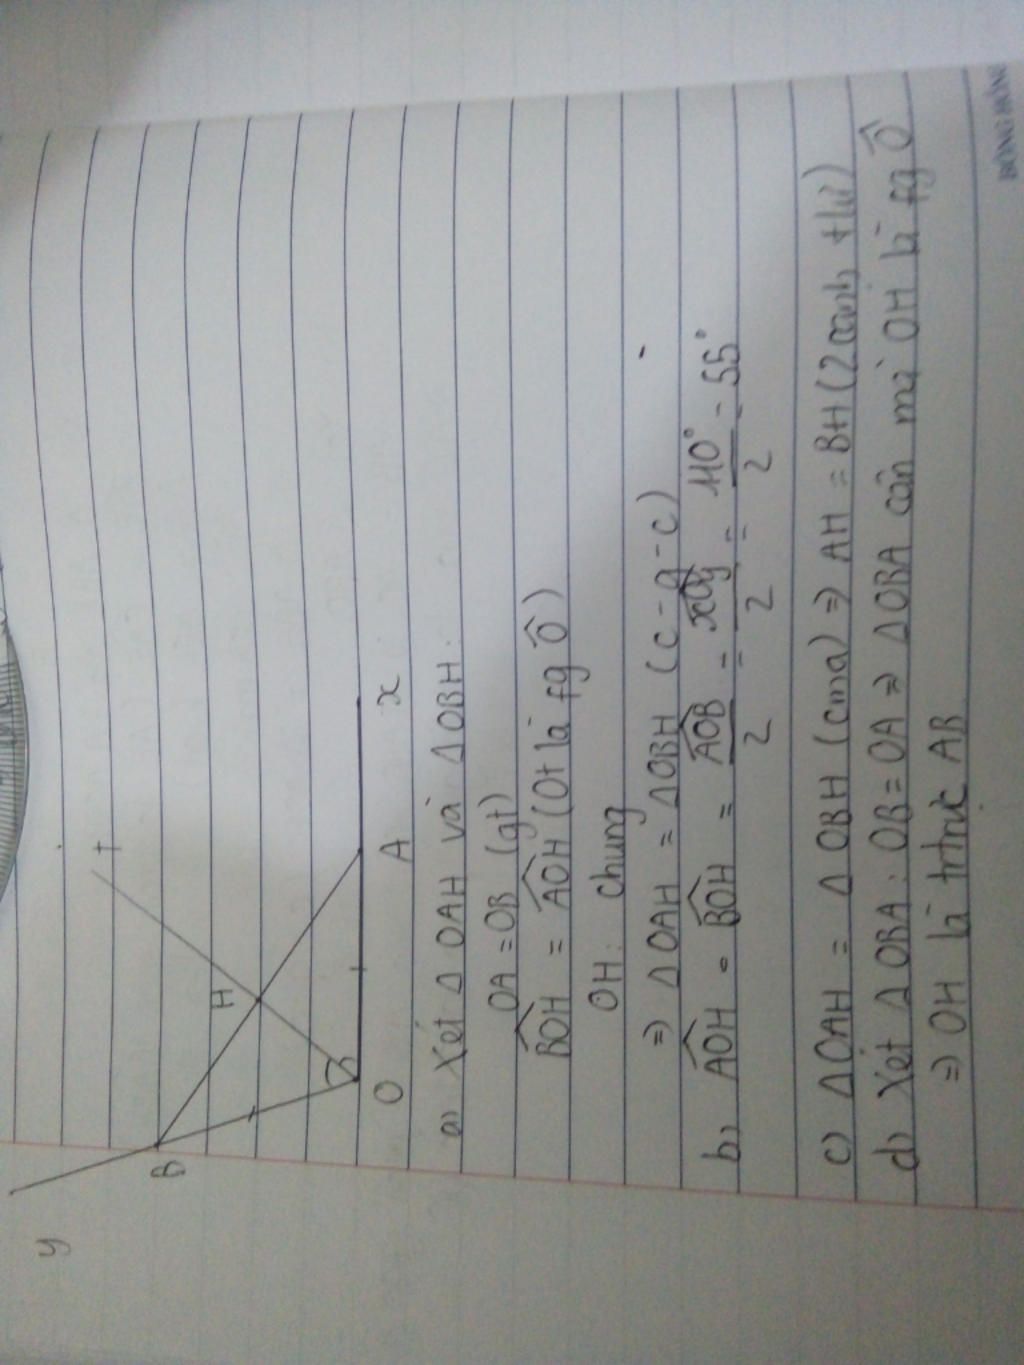 y
B
H
t
O
A
x
a) Xét Δ OAH và Δ OBH:
OA = OB (gt)
BOH = AOH (Ot là fg Ô)
OH: chung
=> Δ OAH = Δ OBH (c-g-c)
b) AOH = BOH = AOB/2 = xOy/2 = 110°/2 = 55°
c) Δ OAH = Δ OBH (cma) => AH = BH (2 cạnh tứ)
d) Xét Δ OBA: OB = OA => Δ OBA cân mà OH là fg Ô
=> OH là trtrực AB